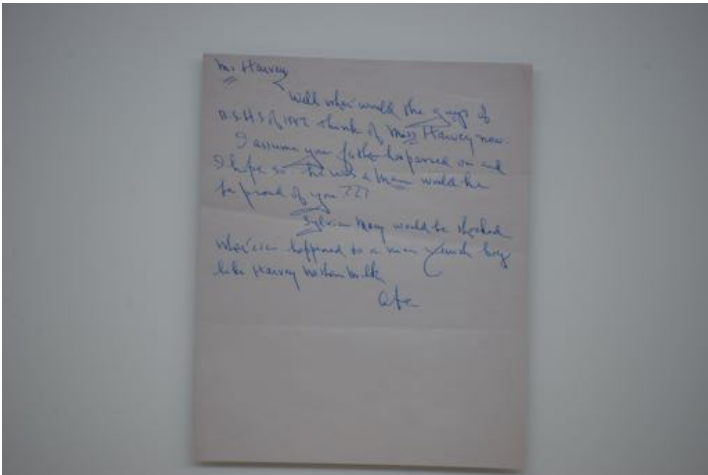 Mr Harvey
Well what would the guys of
B.S.H.S of 1947 think of Miss Harvey now.
I assume you father has passed on and
I hope so. he was a man would he
be proud of you ???
Sylvia May would be shocked
what ever happened to a nice Jewish boy
like Harvey Milk